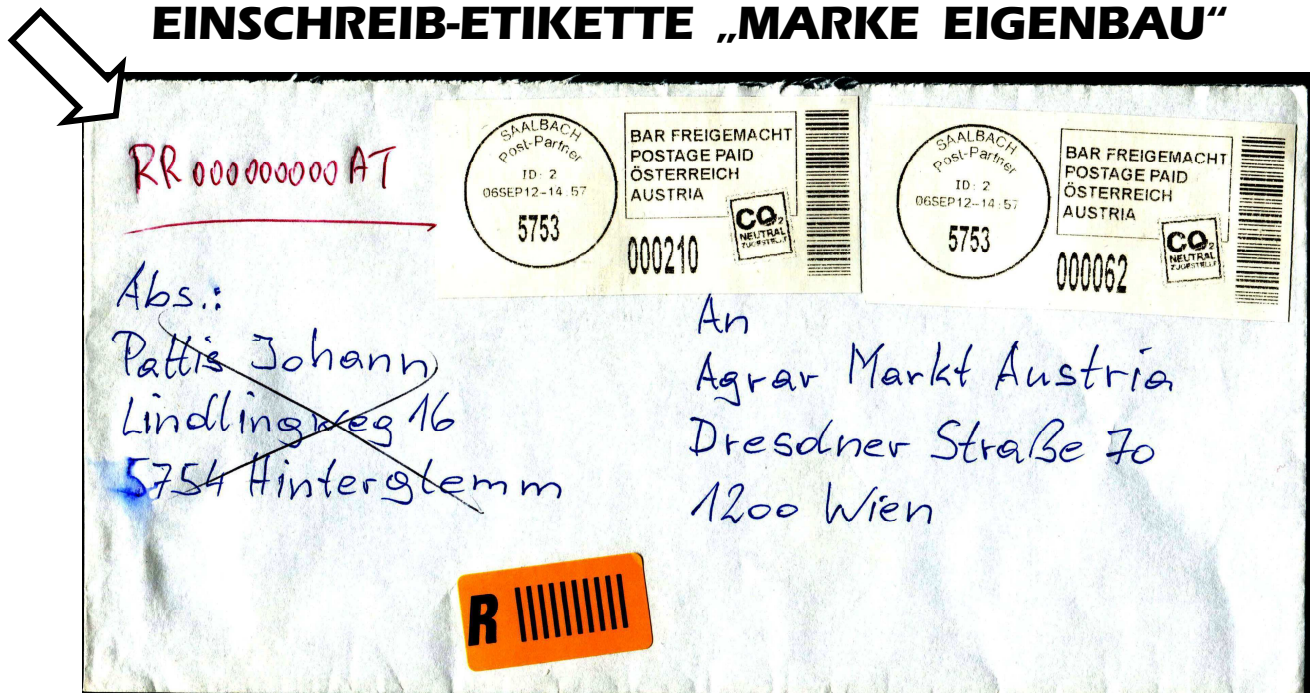 EINSCHREIB-ETIKETTE „MARKE EIGENBAU“
RR 000000000 AT
SAALBACH
Post-Partner
ID: 2
06SEP12-14:57
5753
BAR FREIGEMACHT
POSTAGE PAID
ÖSTERREICH
AUSTRIA
000210
CO2
NEUTRAL
ZUGESTELLT
SAALBACH
Post-Partner
ID: 2
06SEP12-14:57
5753
BAR FREIGEMACHT
POSTAGE PAID
ÖSTERREICH
AUSTRIA
000062
CO2
NEUTRAL
ZUGESTELLT
Abs.:
Pattis Johann
Lindlingweg 16
5754 Hinterglemm
An
Agrar Markt Austria
Dresdner Straße 70
1200 Wien
R